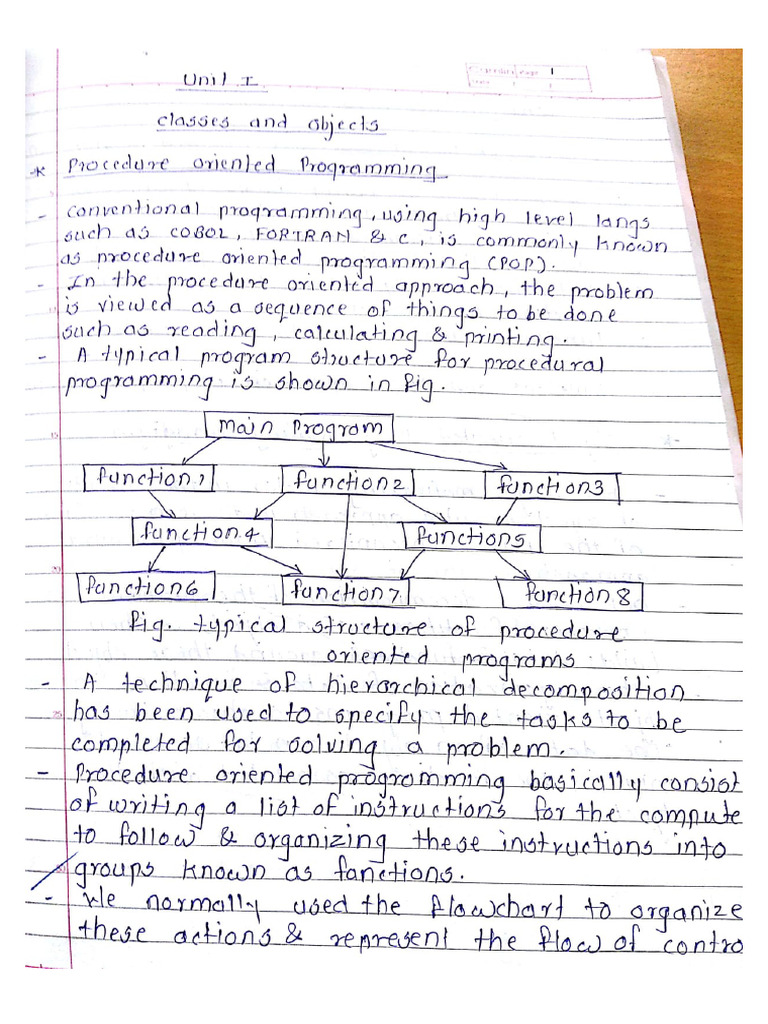 Unit I
Page 1
classes and objects
Procedure oriented Programming
- conventional programming, using high level langs
such as COBOL, FORTRAN & C, is commonly known
as procedure oriented programming (POP).
- In the procedure oriented approach, the problem
is viewed as a sequence of things to be done
such as reading, calculating & printing.
- A typical program structure for procedural
programming is shown in fig.
main program
function1 function2 function3
function4 function5
function6 function7 function8
fig. typical structure of procedure
oriented programs
- A technique of hierarchical decomposition
has been used to specify the tasks to be
completed for solving a problem.
- Procedure oriented programming basically consist
of writing a list of instructions for the compute
to follow & organizing these instructions into
groups known as fanctions.
- We normally used the flowchart to organize
these actions & represent the flow of contro